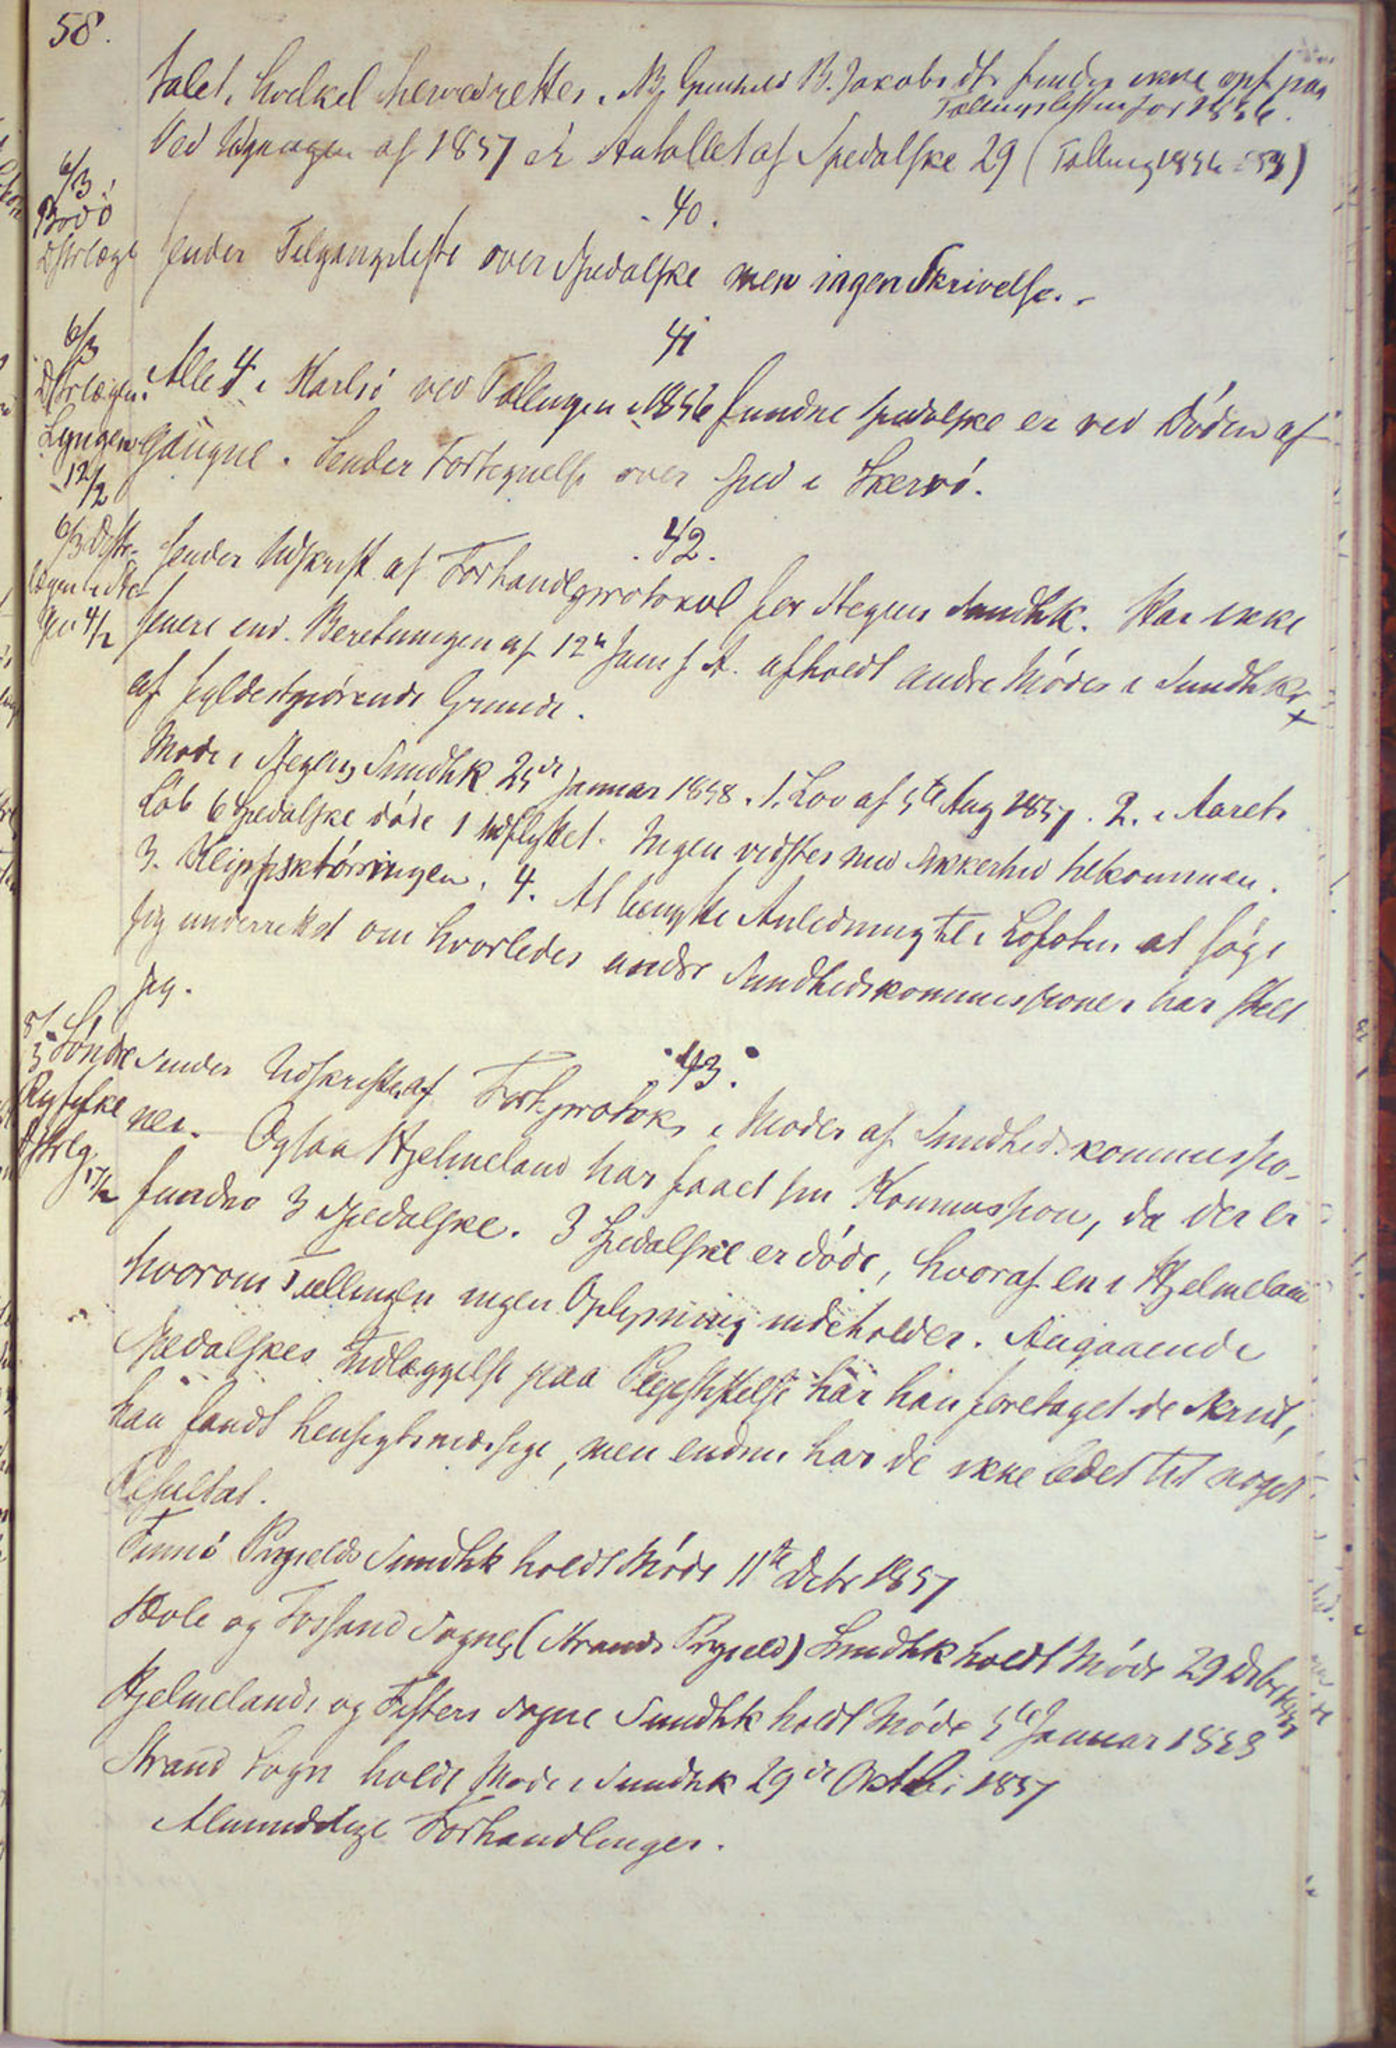 58.
talet, hvilket herved rettes. NB. Gunhild B. Jakobsdtr findes ikke opf paa
Tællingslisten for 1856.
Ved Udgangen af 1857 er Antallet af Spedalske 29 (Tælling 1856 = 33)
6/3
Bodö
Dstrlæge
40.
sender Tilgangsliste over Spedalske men ingen Skrivelse. -
6/3
Dstrlægen.
Lyngen
12/2
41
Alle 4 i Karlsö ved Tællingen i 1856 fundne spedalske er ved Döden af
gaaene. Sender Fortegnelse over sped i Skervö.
6/3 Dstr-
lægen i Ste-
gen 4/2
42.
sender Udskrift af Forhandlgprotokol for Stegens Sundhk. Har ikke
senere end Beretningen af 12te Jan f. A. afholdt andre Möder i Sundhk
af fyldestgjörende Grunde.
Möde i Stegens Sundhk 25de Januar 1858. 1. Lov af 5te Aug 1857. 2. i Aarets
Löb 6 Spedalske döde 1 udflyttet. Ingen vidstes med Sikkerhed tilkommen.
3. Klipfisktörringen. 4. At benytte Anledning til i Lofoten at söge
sig underrettet om hvorledes andre Sundhedskommissioner har stelt
sig.
8/3 Söndre
Ryfylke
Dstrlg.
17/2
43.
sender Udskrifter af Forhprotok i Möder af Sundhedskommissio-
ner. Ogsaa Hjelmeland har faaet sin Kommission, da der er
fundne 3 Spedalske. 3 Spedalske er döde, hvoraf en i Hjelmeland
hvorom Tællingen ingen Oplysning indeholder. Angaaende
Spedalskes Indlæggelse paa Pleiestiftelse har han foretaget de Skridt,
han fandt hensigtsmæssige, men endnu har de ikke ledet til noget
Resultat.
Finnö Prgjelds Sundhk holdt Möde 11te Debr 1857
Höle og Fossand Sogne (Strands Prgjeld) Sundhk holdt Möde 29 Debr 1857
Hjelmelands og Fisters Sogne Sundhk holdt Möde 5te Januar 1858
Strand Sogn holdt Möde i Sundhk 29de Oktbr 1857
Almindelige Forhandlinger.